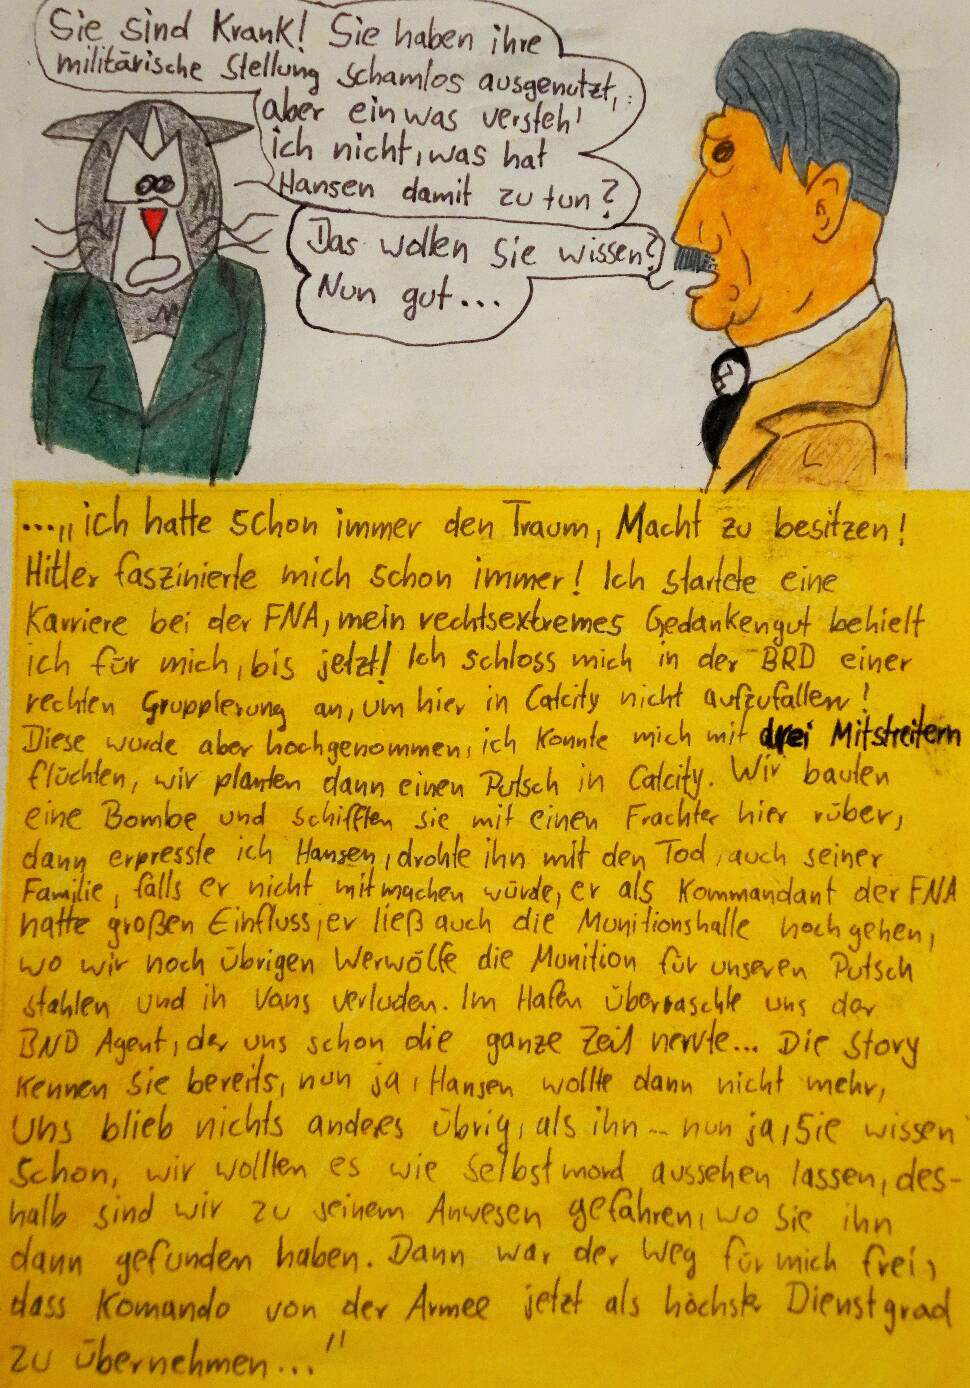 Sie sind Krank! Sie haben ihre
militärische Stellung schamlos ausgenutzt,
aber ein was versteh'
ich nicht, was hat
Hansen damit zu tun?
Das wollen Sie wissen?
Nun gut...
...„ich hatte schon immer den Traum, Macht zu besitzen!
Hitler faszinierte mich schon immer! Ich startete eine
Karriere bei der FNA, mein rechtsextremes Gedankengut behielt
ich für mich, bis jetzt! Ich schloss mich in der BRD einer
rechten Gruppierung an, um hier in Catcity nicht aufzufallen!
Diese wurde aber hochgenommen, ich konnte mich mit drei Mitstreitern
flüchten, wir planten dann einen Putsch in Catcity. Wir bauten
eine Bombe und schifften sie mit einen Frachter hier rüber,
dann erpresste ich Hansen, drohte ihn mit den Tod, auch seiner
Familie, falls er nicht mitmachen würde, er als Kommandant der FNA
hatte großen Einfluss, er ließ auch die Munitionshalle hochgehen,
wo wir noch übrigen Werwölfe die Munition für unseren Putsch
stahlen und in Vans verluden. Im Hafen überraschte uns der
BND Agent, der uns schon die ganze Zeit nervte... Die Story
kennen Sie bereits, nun ja, Hansen wollte dann nicht mehr,
uns blieb nichts anderes übrig, als ihn... nun ja, Sie wissen
schon, wir wollten es wie Selbstmord aussehen lassen, des-
halb sind wir zu seinem Anwesen gefahren, wo sie ihn
dann gefunden haben. Dann war der Weg für mich frei,
dass Komando von der Armee jetzt als höchste Dienstgrad
zu übernehmen..."